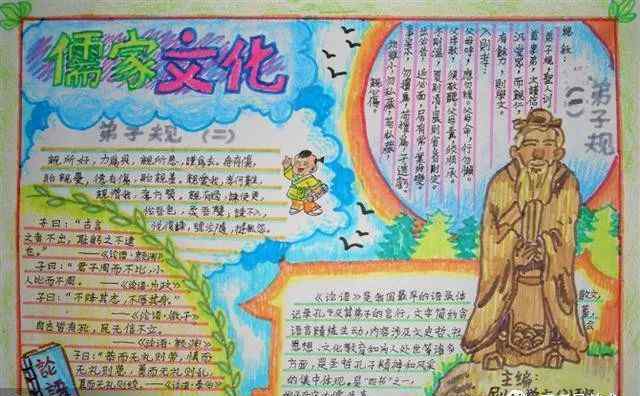 儒家文化
弟子规（二）
亲所好，力为具，亲所恶，谨为去，身有伤，
贻亲忧，德有伤，贻亲羞，亲爱我，孝何难，
亲憎我，孝方贤，亲有过，谏使更，
怡吾色，柔吾声，谏不入，
悦复谏，号泣随，挞无怨。
子曰：“古者
言之不出，耻躬之不逮
也。
子曰：“君子周而不比，小
人比而不周。——《论语·为政》
子曰：“不降其志，不辱其身。”
——《论语·微子》
自古皆有死，民无信不立。
——《论语·颜渊》
子曰：“恭而无礼则劳，慎而
无礼则葸，勇而无礼则乱，
直而无礼则绞。——《论语·泰伯》
论语
弟子规（一）
总叙：
弟子规，圣人训，
首孝弟，次谨信，
泛爱众，而亲仁，
有余力，则学文。
入则孝：
父母呼，应勿缓。父母命，行勿懒。
父母教，须敬听。父母责，须顺承。
冬则温，夏则凊，晨则省，昏则定。
出必告，反必面，居有常，业无变。
事虽小，勿擅为，苟擅为，子道亏。
物虽小，勿私藏，苟私藏，
亲心伤。
《论语》是我国最早的语录体
记录孔子及其弟子的言行，文字简约含
语言精练生动，内容涉及文史哲，社
思想、文化教育和为人处世等诸多
方面，是至圣孔子精神和风采
的集中体现，是“四书”之一，
主编：